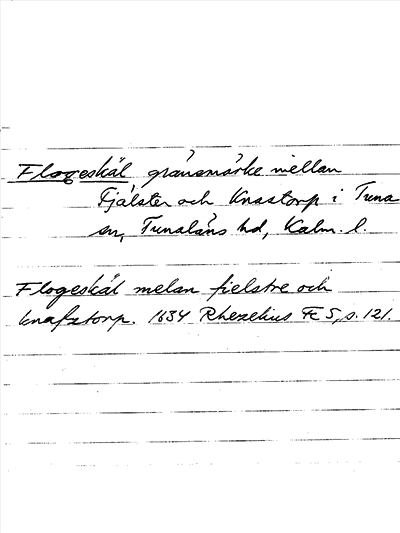 Flogeskäl gränsmärke mellan
Fjälster och Knastorp i Tuna
sn, Tunaläns hd, Kalm. l.
Flogeskäl melan fielstre och
knafztorp. 1634 Rhezelius Fc 5, s. 121.